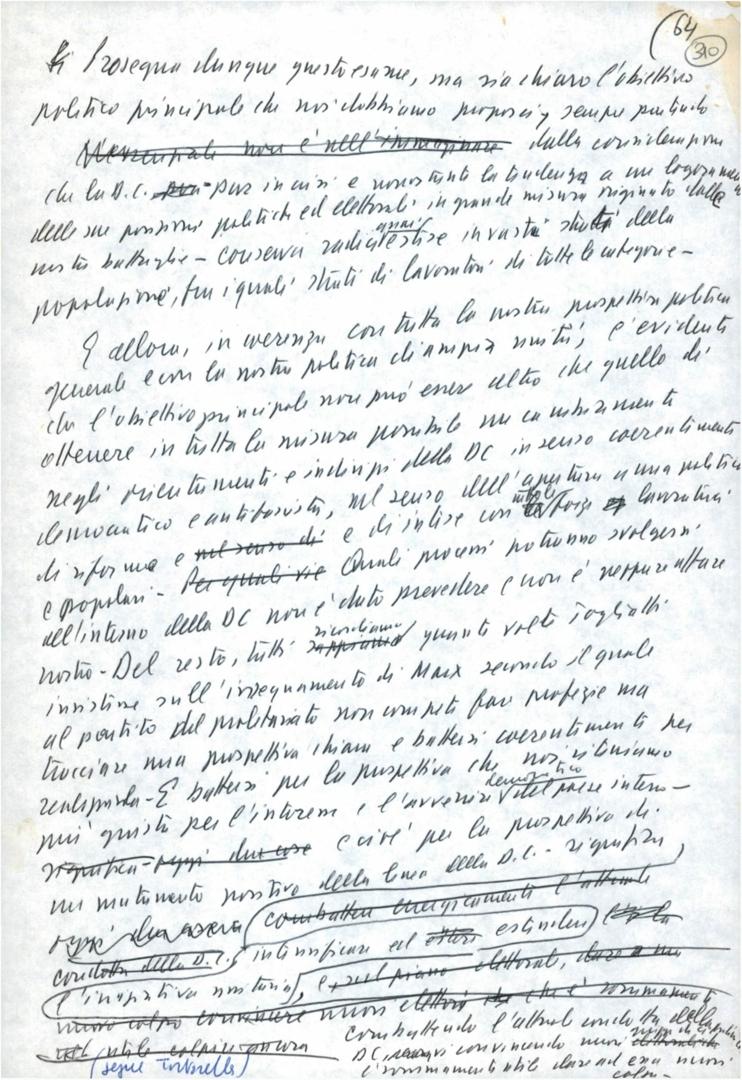 (64
310
Prosegua dunque questo esame, ma sia chiaro l'obiettivo
politico principale che noi dobbiamo proporci, sempre partendo
L'essenziale non è nell'immaginare dalla considerazione
che la D.C. pur in crisi e nonostante la tendenza a un logoramento
delle sue posizioni politiche ed elettorali in grande misura originato dalle
nostre battaglie - conserva radici assai estese in vasti strati della
popolazione, fra i quali strati di lavoratori di tutte le categorie -
E allora, in coerenza con tutta la nostra prospettiva politica
generale e con la nostra politica di ampia unità, è evidente
che l'obiettivo principale non può essere altro che quello di
ottenere in tutta la misura possibile un cambiamento
negli orientamenti e indirizzi della DC in senso coerentemente
democratico e antifascista, nel senso dell'apertura a una politica
di riforme e nel senso di e di intese con le forze lavoratrici
e popolari - Per quali vie Quali processi potranno svolgersi
all'interno della DC non è dato prevedere e non è neppure affare
nostro - Del resto, tutti sappiamo ricordiamo quante volte Togliatti
insistesse sull'insegnamento di Marx secondo il quale
al partito del proletariato non compete fare profezie ma
tracciare una prospettiva chiara e battersi coerentemente per
realizzarla - E battersi per la prospettiva che noi riteniamo
più giusta per l'interesse e l'avvenire democratico del paese intero -
significa oggi due cose e cioè per la prospettiva di
un mutamento positivo della linea della D.C. - significa,
oggi combattere energicamente l'attuale
condotta della D.C. intensificare ed estendere
l'iniziativa unitaria, e sul piano elettorale, dare a un
nuovo colpo convincere nuovi elettori che è sommamente
utile ancora combattendo l'attuale condotta della
DC, convincendo nuovi
(segue Tortorella) è sommamente utile dare ad essa nuovi
colpi -